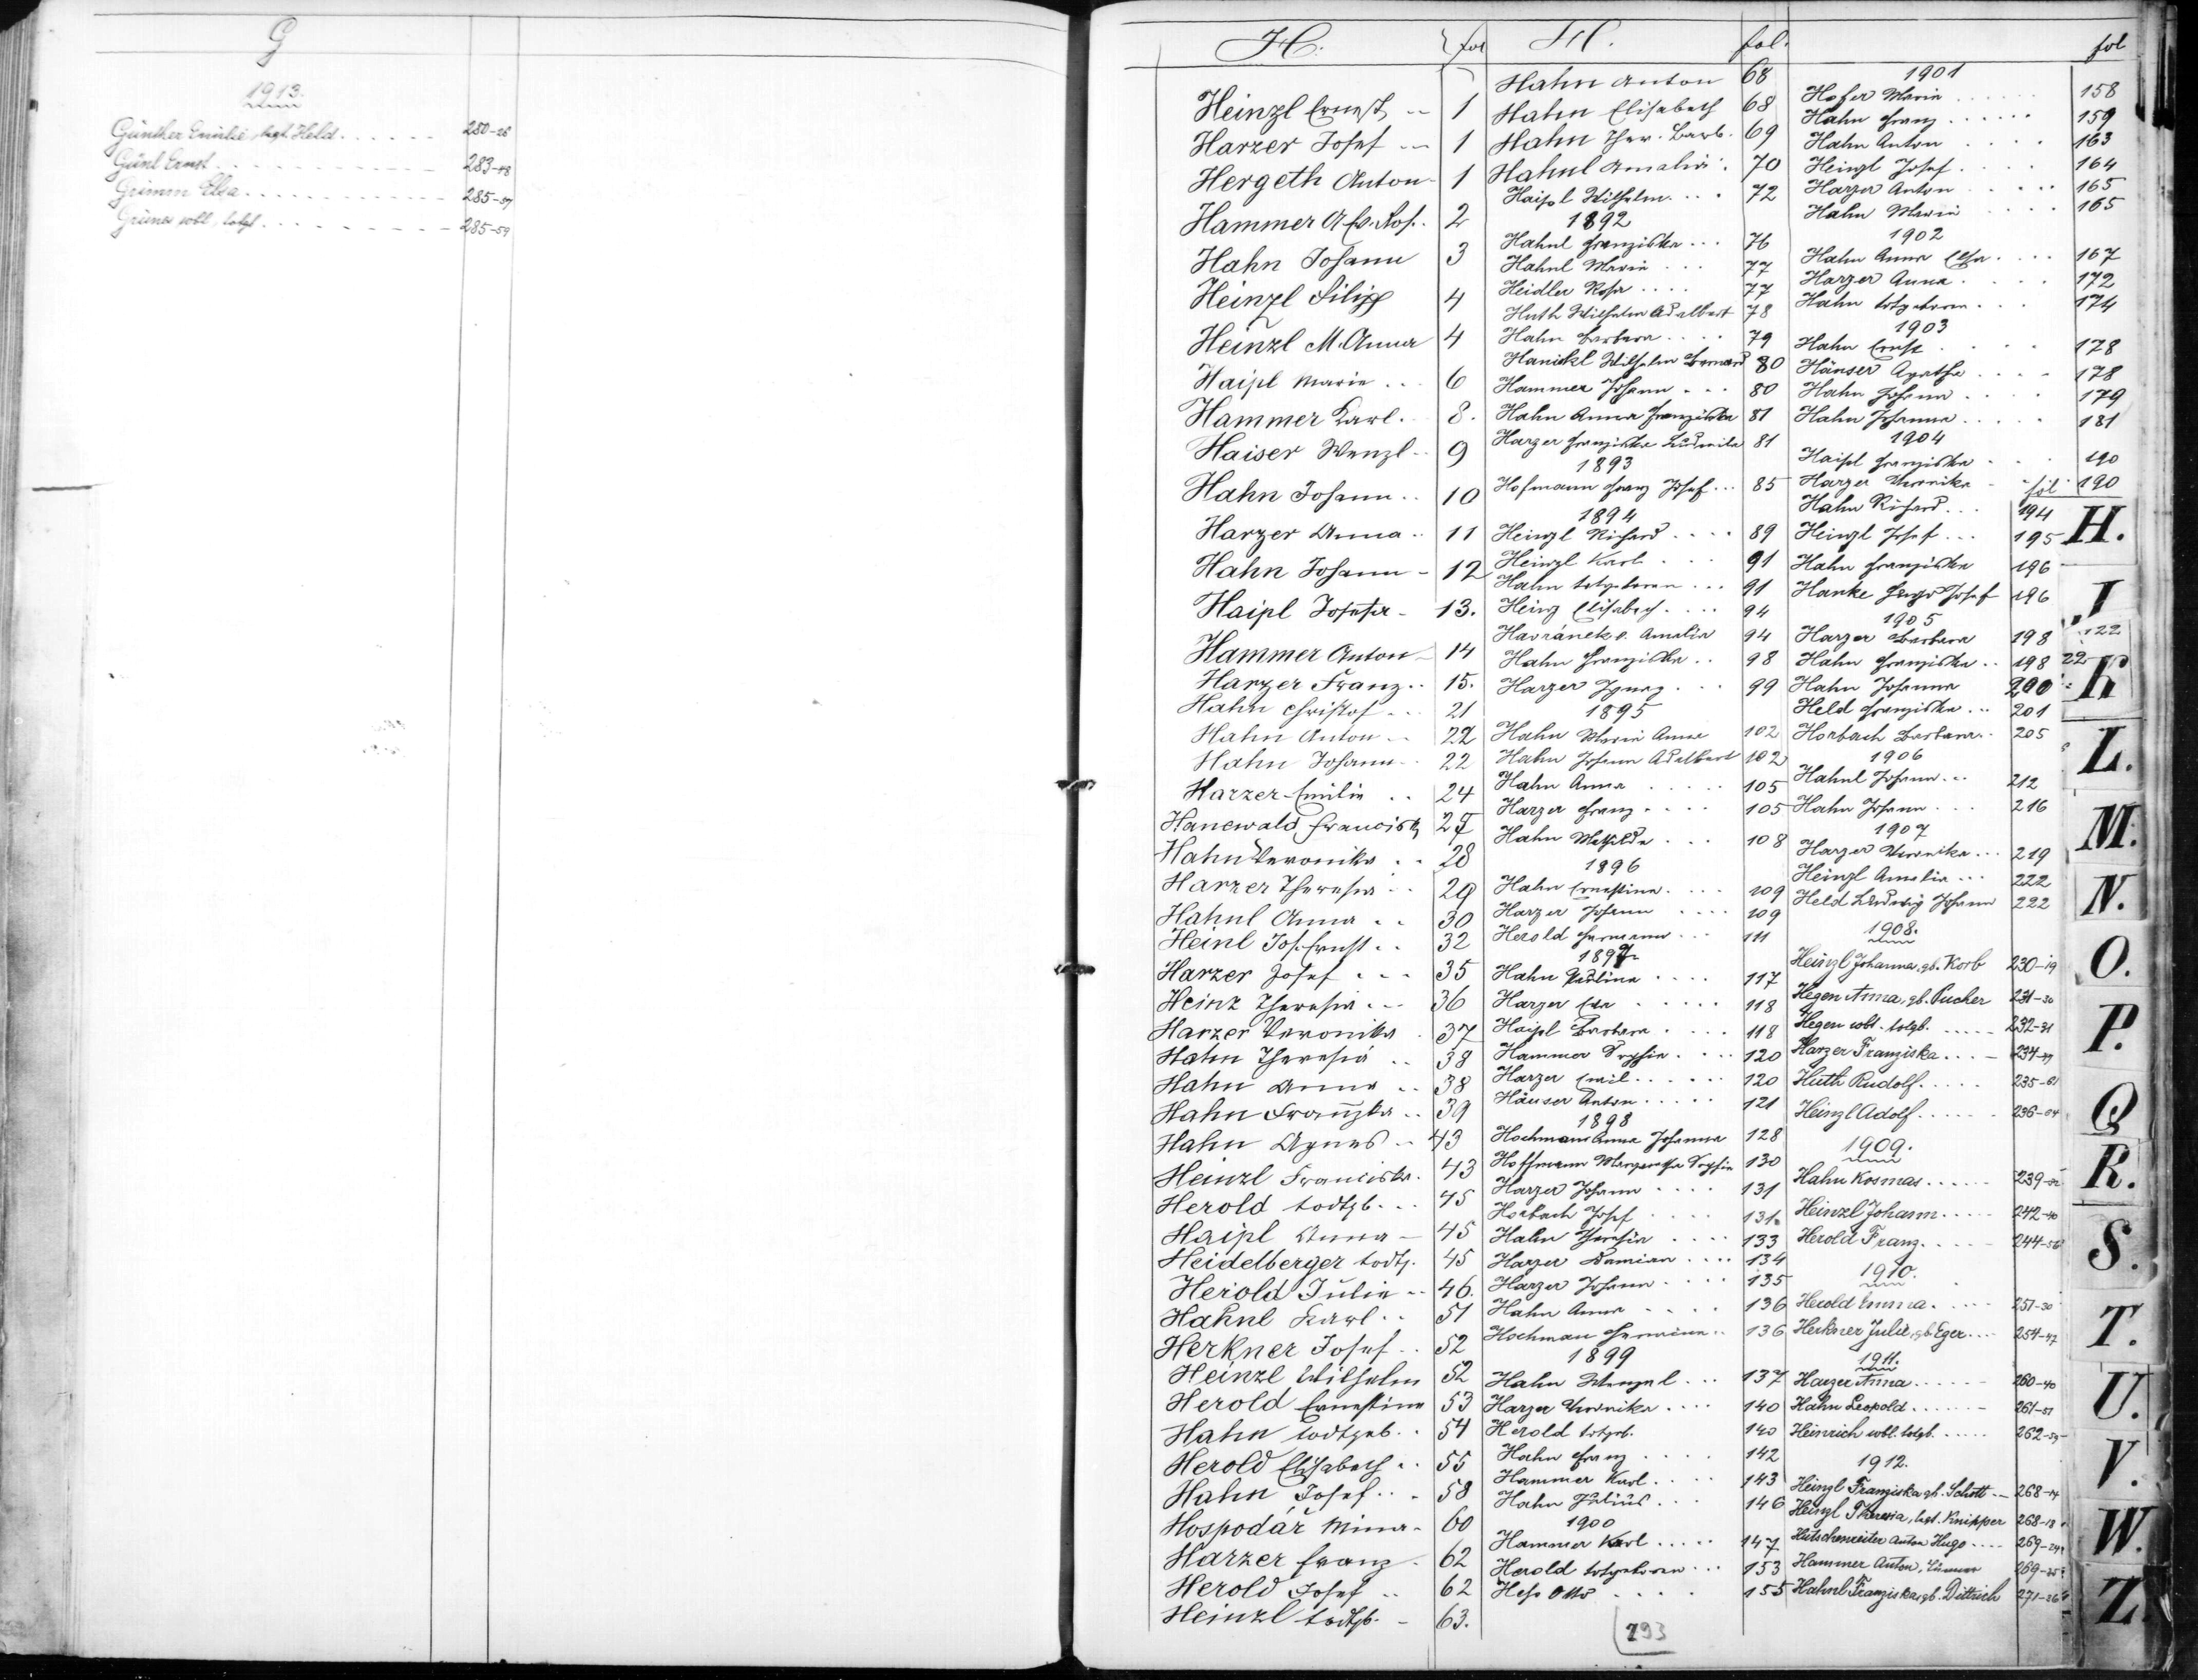 G
1913.
Günther Emilie, legt. Held . . . . . 280-26
Günl Ernst . . . . . 283-48
Grimm Elsa . . . . . 285-57
Grünes wbl. totgb. . . . . 285-59
H. fol
Heinzl Ernest 1
Harzer Josef 1
Hergeth Anton 1
Hammer A. Ros. 2
Hahn Johann 3
Heinzl Filipp 4
Heinzl M. Anna 4
Haipl Marie . . 6
Hammer Karl. 8.
Haiser Wenzl 9
Hahn Johann . . 10
Harzer Anna . . 11
Hahn Johann - 12
Haipl Josefa - 13.
Hammer Anton 14
Harzer Franz . . 15.
Hahn Christof . . 21
Hahn Anton . . 22
Hahn Johann . . 22
Harzer Emilie . . 24
Hanewald Francisk 27
Hahn Veronika . . 28
Harzer Theresia . . 29
Hahnl Anna . . 30
Heinl Jos. Ernst . . 32
Harzer Josef . . . 35
Heinz Theresia . . 36
Harzer Veronika . 37
Hahn Theresia . . 38
Hahn Anna . . 38
Hahn Franzka . . 39
Hahn Agnes . . 43
Heinzl Franciska . 43
Herold todtgb. . . 45
Haipl Anna - 45
Heidelberger todtg. 45
Herold Julie . . 46.
Hahnl Karl . . 51
Herkner Josef . . 52
Heinzl Wilhelm 52
Herold Ernestine 53
Hahn todtgeb. . 54
Herold Elisabeth . . 55
Hahn Josef . . . 58
Hospodář Mina - 60
Harzer Franz . 62
Herold Josef . . 62
Heinzl todtgb. - 63.
H. fol.
Hahn Anton 68
Hahn Elisabeth 68
Hahn Ther. Barb. 69
Hahnl Amalia . 70
Haipl Wilhelm . . . 72
1892
Hahnl Franziska . . . 76
Hahnl Marie . . . 77
Heidler Rosa . . . . 77
Huth Wilhelm Adalbert 78
Hahn Barbara . . . . 79
Hanickl Wilhelm Bernard 80
Hammer Johann . . . 80
Hahn Anna Franziska 81
Harzer Franziska Ludmila 81
1893
Hofmann Franz Josef . . . 85
1894
Heinzl Richard . . . . 89
Heinzl Karl . . . 91
Hahn totgeboren . . . 91
Heinz Elisabeth . . . . 94
Havránek v. Amalia 94
Hahn Franziska . . 98
Harzer Ignaz . . . 99
1895
Hahn Marie Anna 102
Hahn Johann Adalbert 102
Hahn Anna . . . . . 105
Harzer Franz . . . . 105
Hahn Mathilde . . . 108
1896
Hahn Ernestine . . . . 109
Harzer Johann . . . . 109
Herold Hermann . . . 111
1897
Hahn Paulina . . . . 117
Harzer Eva . . . . . 118
Haipl Barbara . . . . 118
Hammer Sophie . . . . 120
Harzer Emil . . . . . 120
Häuser Anton . . . . . 121
1898
Hochmann Anna Johanna 128
Hoffmann Margaretha Sophie 130
Harzer Johann . . . . 131
Horbach Josef . . . . 131.
Hahn Theresia . . . . 133
Harzer Damian . . . . 134
Harzer Johann . . . . 135
Hahn Anna . . . . 136
Hochman Hermine . . 136
1899
Hahn Wenzel . . . 137
Harzer Veronika . . . . 140
Herold totgeb. 140
Hahn Franz . . . . 142
Hammer Karl . . . . 143
Hahn Julius . . . 146
1900
Hammer Karl . . . . . 147
Herold totgeboren . . . 153
Hess Otto . . . . 155
293
fol
1901
Hofer Marie . . . . . 158
Hahn Franz . . . . . . 159
Hahn Anton . . . . 163
Heinzl Josef . . . . 164
Harzer Anton . . . . 165
Hahn Marie . . . . 165
1902
Hahn Anna Elsa . . . . 167
Harzer Anna . . . . . 172
Hahn totgeboren . . . 174
1903
Hahn Ernst . . . . 178
Hänser Agathe . . . . 178
Hahn Johann . . . . 179
Hahn Johanna . . . . 181
1904
Haipl Franziska . . . 190
Harzer Veronika - fol 190
Hahn Richard . . . 194
Heinzl Josef . . . 195
Hahn Franziska 196
Hanke Hugo Josef 196
1905
Harzer Barbara 198
Hahn Franziska . . 198
Hahn Johanna 200
Held Franziska . . . 201
Horbach Barbara . . 205
1906
Hahnl Johann . . . 212
Hahn Johann . . . 216
1907
Harzer Veronika . . . 219
Heinzl Amalia . . . 222
Held Ludwig Johann 222
1908.
Heinzl Johanna, gb. Korb 230-19
Hegen Anna, gb. Pucher 231-30
Hegen wbl. totgb. . . . . . 232-31
Harzer Franziska . . . - 234-49
Huth Rudolf . . . . . 235-61
Heinzl Adolf . . . . . . 236-64
1909.
Hahn Kosmas . . . . . . 239-22
Heinzl Johann . . . . . 242-40
Herold Franz . . . . - 244-56
1910.
Herold Emma . . . . . 251-30
Herkner Julie, gb. Eger . . . . 254-47
1911.
Harzer Anna . . . . . . 260-40
Hahn Leopold . . . . . . 261-51
Heinrich wbl. totgb. . . . . . 262-59
1912.
Heinzl Franziska gb. Schott . - 268-14
Heinzl Theresia, legt. Knipper 268-18
Hutschenreiter Anton Hugo . . . . 269-24
Hammer Anton, 269-25
Hahnl Franziska, gb. Dittrich 271-36
H.
J
122
22
K
L.
M.
N.
O.
P.
Q
R.
S.
T.
U.
V.
W.
Z.